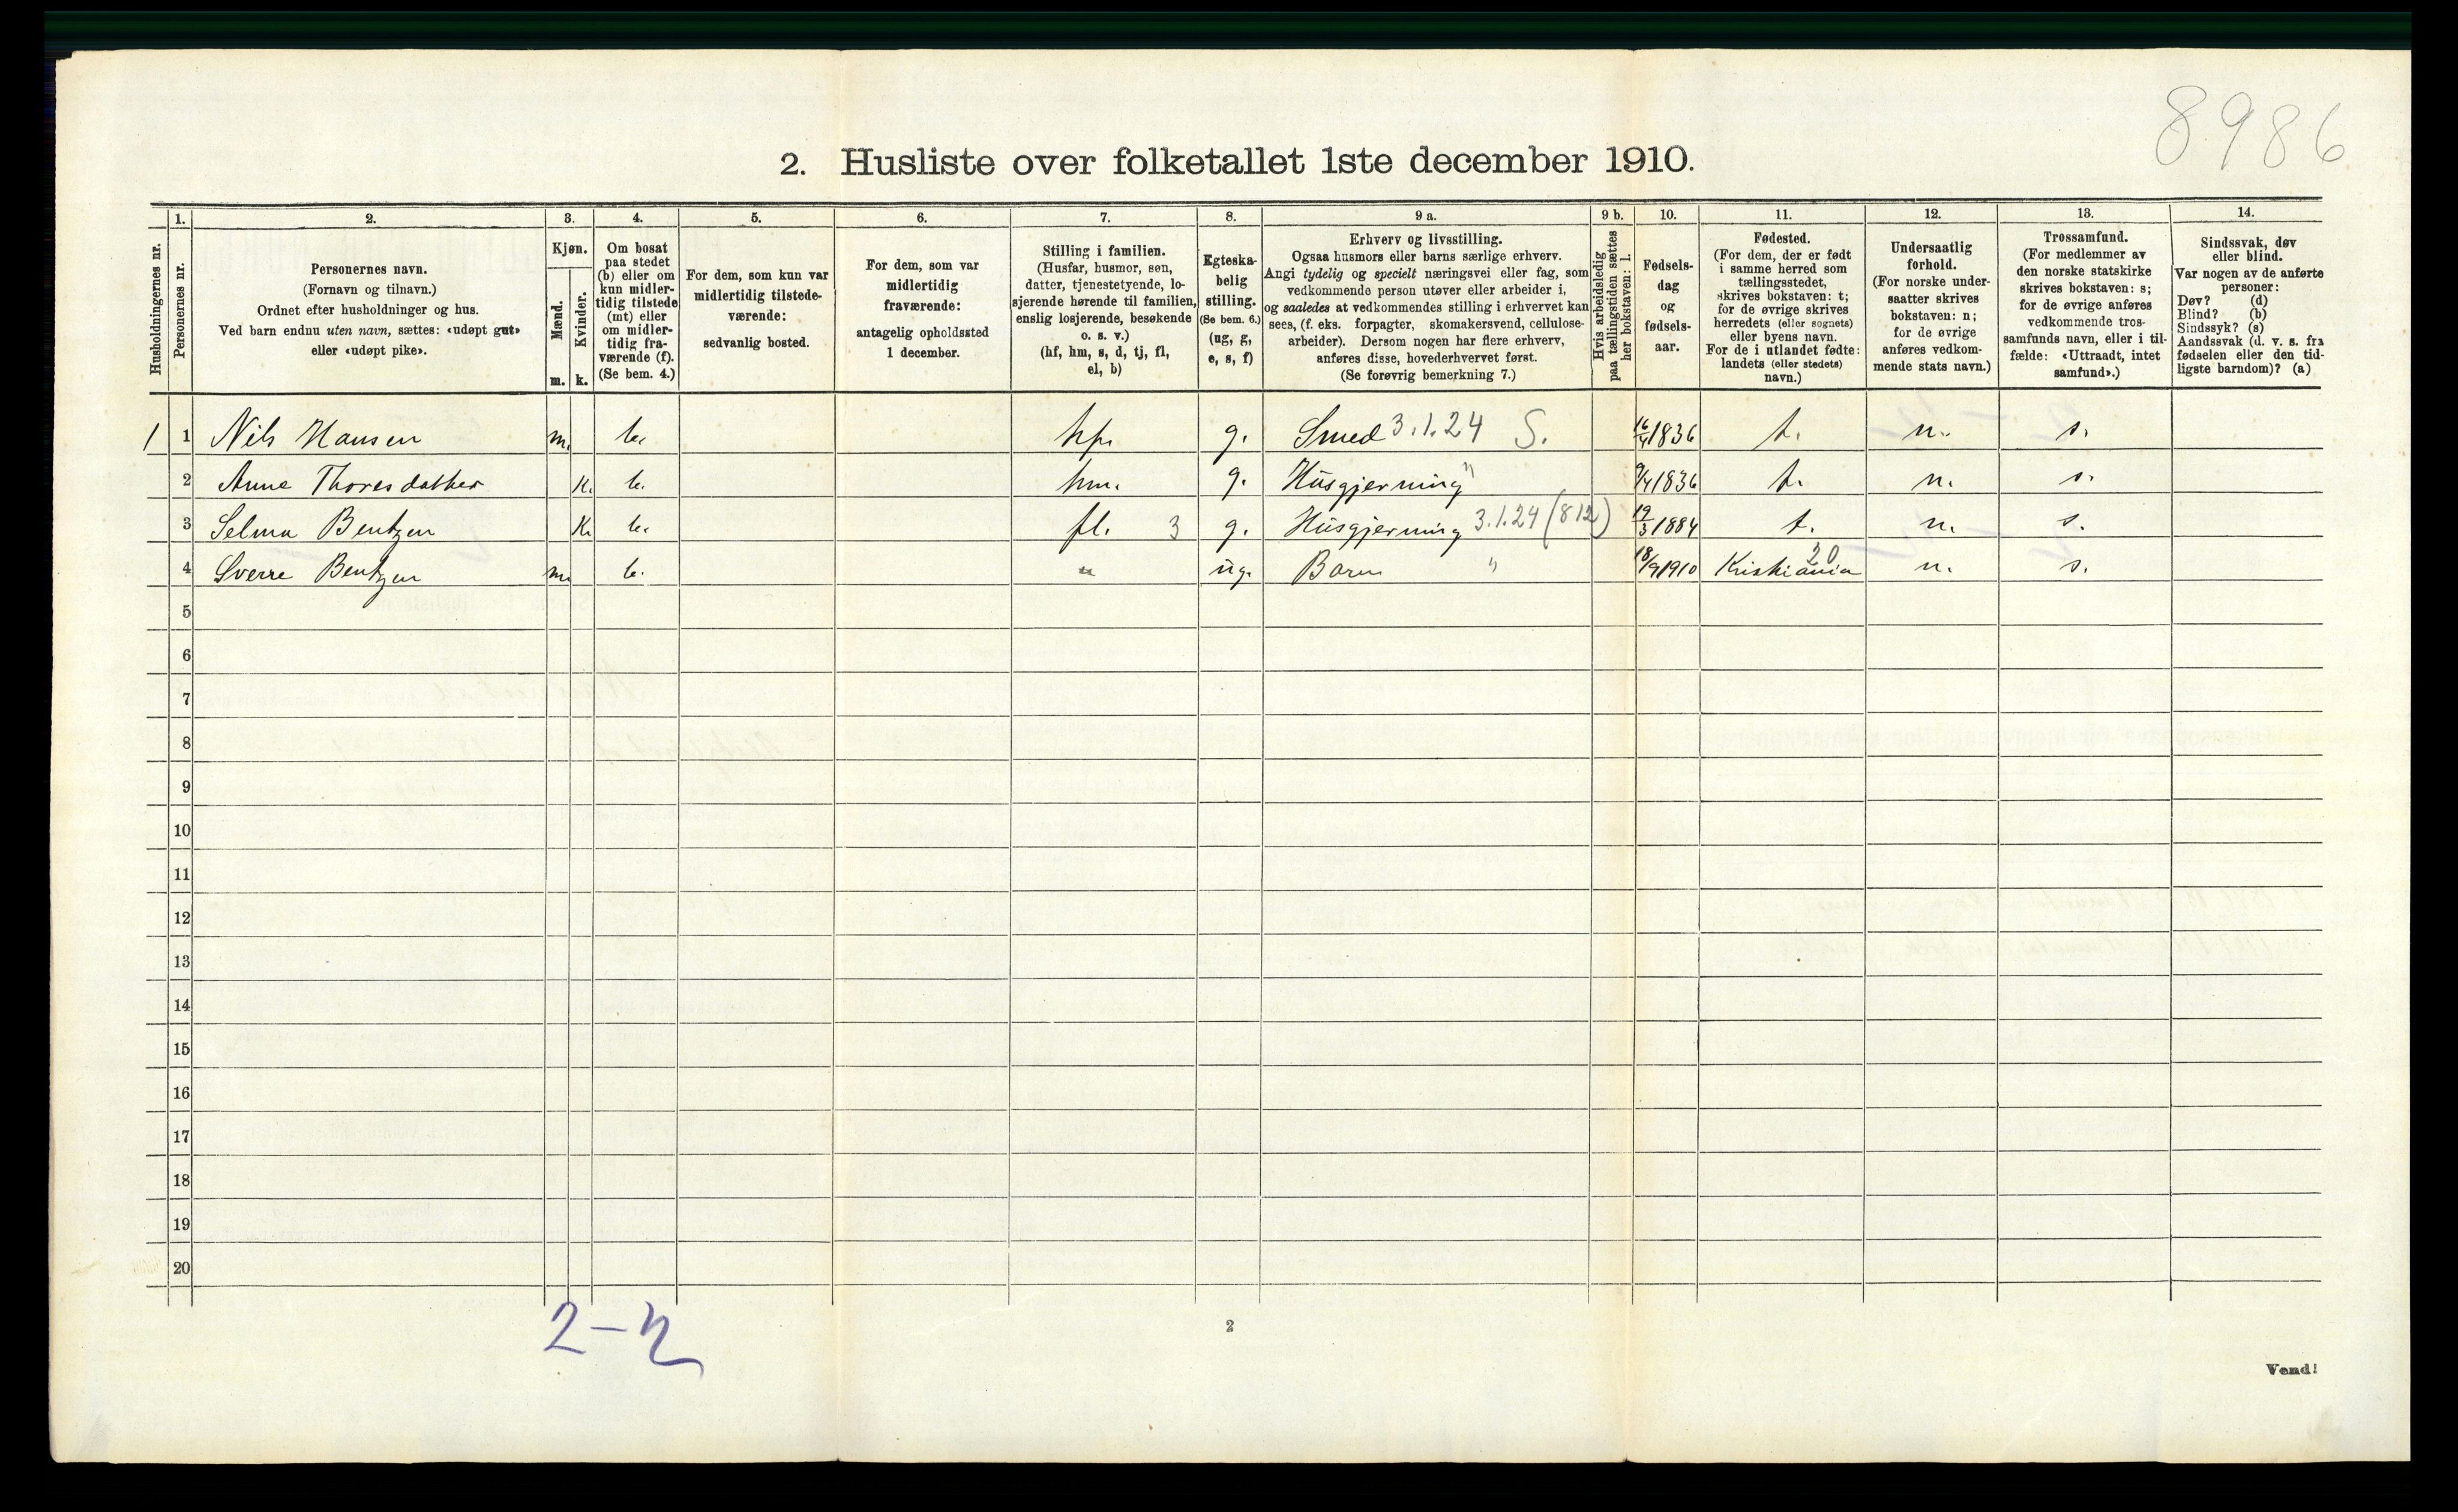 8986
2. Husliste over folketallet 1ste december 1910.
1. 2. 3. 4. 5. 6. 7. 8. 9 a. 9 b. 10. 11. 12. 13. 14.
Husholdningernes nr.
Personernes nr.
Personernes navn.
(Fornavn og tilnavn.)
Ordnet efter husholdninger og hus.
Ved barn endnu uten navn, sættes: «udøpt gut»
eller «udøpt pike».
Kjøn.
Mænd.
Kvinder.
m. k.
Om bosat
paa stedet
(b) eller om
kun midler-
tidig tilstede
(mt) eller
om midler-
tidig fra-
værende (f).
(Se bem. 4.)
For dem, som kun var
midlertidig tilstede-
værende:
sedvanlig bosted.
For dem, som var
midlertidig
fraværende:
antagelig opholdssted
1 december.
Stilling i familien.
(Husfar, husmor, søn,
datter, tjenestetyende, lo-
sjerende hørende til familien,
enslig losjerende, besøkende
o. s. v.)
(hf, hm, s, d, tj, fl,
el, b)
Egteska-
belig
stilling.
(Se bem. 6.)
(ug, g,
e, s, f)
Erhverv og livsstilling.
Ogsaa husmors eller barns særlige erhverv.
Angi tydelig og specielt næringsvei eller fag, som
vedkommende person utøver eller arbeider i,
og saaledes at vedkommendes stilling i erhvervet kan
sees, (f. eks. forpagter, skomakersvend, cellulose-
arbeider). Dersom nogen har flere erhverv,
anføres disse, hovederhvervet først.
(Se forøvrig bemerkning 7.)
Hvis arbeidsledig
paa tællingstiden sættes
her bokstaven: l.
Fødsels-
dag
og
fødsels-
aar.
Fødested.
(For dem, der er født
i samme herred som
tællingsstedet,
skrives bokstaven: t;
for de øvrige skrives
herredets (eller sognets)
eller byens navn.
For de i utlandet fødte:
landets (eller stedets)
navn.)
Undersaatlig
forhold.
(For norske under-
saatter skrives
bokstaven: n;
for de øvrige
anføres vedkom-
mende stats navn.)
Trossamfund.
(For medlemmer av
den norske statskirke
skrives bokstaven: s;
for de øvrige anføres
vedkommende tros-
samfunds navn, eller i til-
fælde: «Uttraadt, intet
samfund».)
Sindssvak, døv
eller blind.
Var nogen av de anførte
personer:
Døv? (d)
Blind? (b)
Sindssyk? (s)
Aandssvak (d. v. s. fra
fødselen eller den tid-
ligste barndom)? (a)
1 1 Nils Hansen m. b. hf. g. Smed 3.1.24 S. 16/4 1836 t. n. s.
2 Anne Thoresdatter k. b. hm. g. Husgjerning " 9/4 1836 t. n. s.
3 Selma Bentzen k. b. fl. 3 g. Husgjerning 3.1.24 (812) 19/3 1884 t. n. s.
4 Sverre Bentzen m. b. " ug. Barn " 18/9 1910 Kristiania 20 n. s.
5
6
7
8
9
10
11
12
13
14
15
16
17
18
19
20
2 – 2
2
Vend!